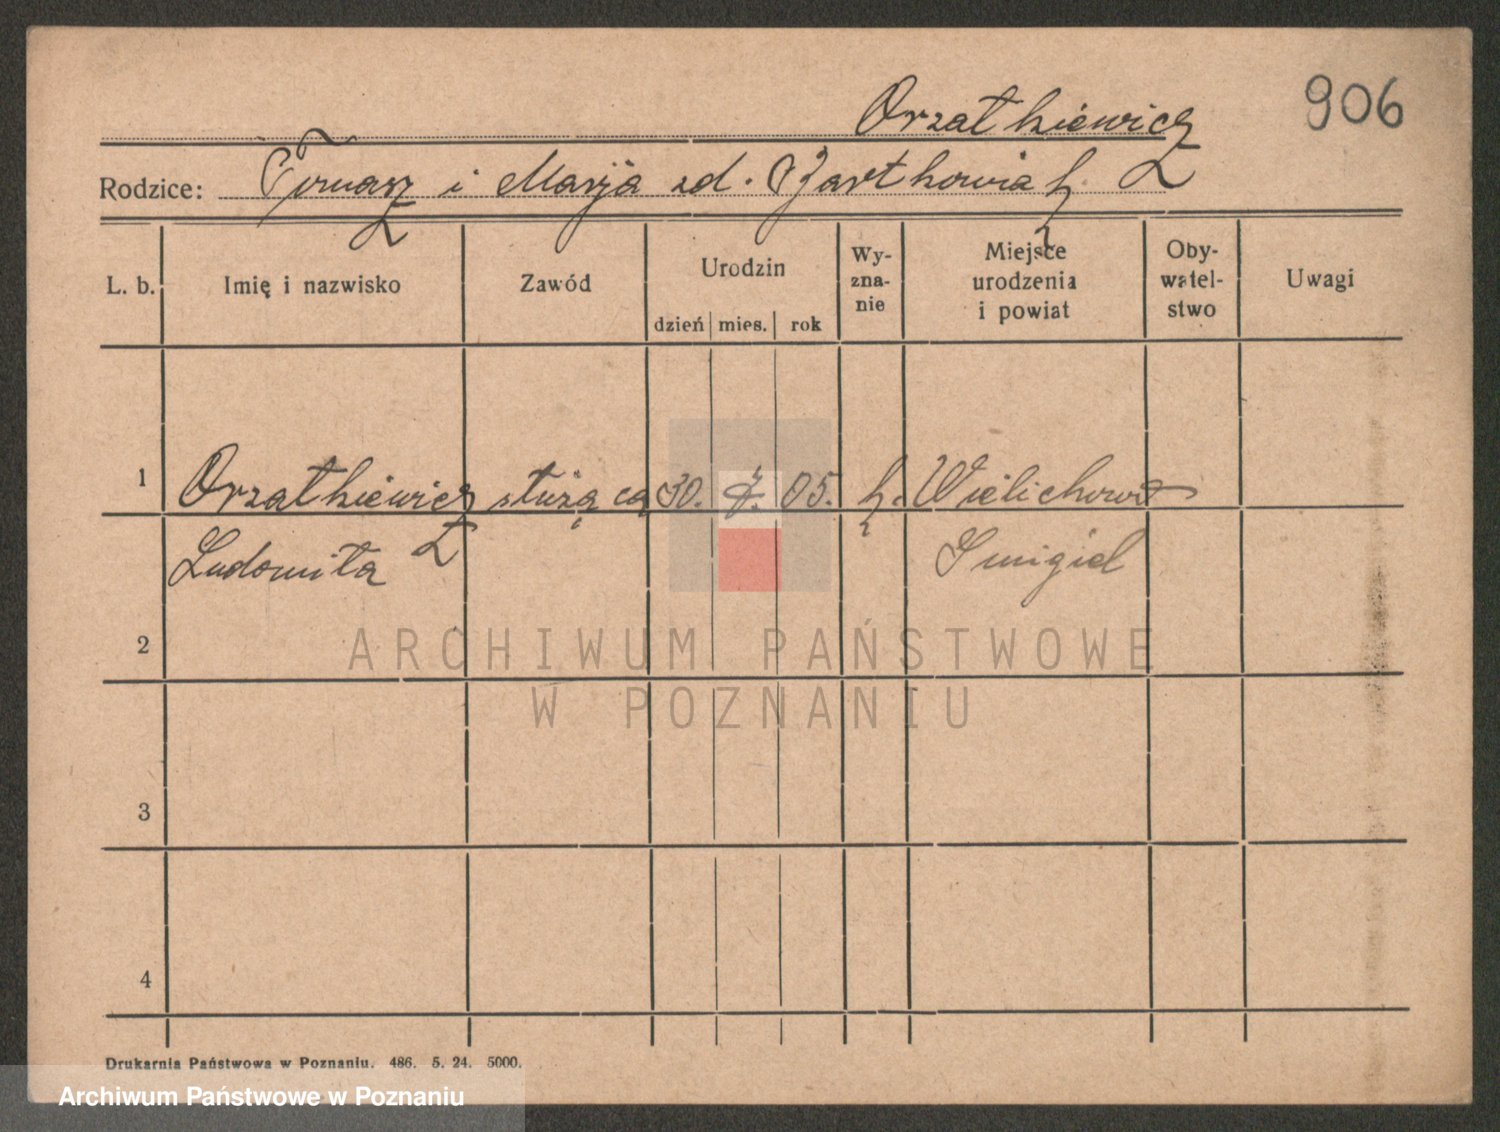 906
Orzałkiewicz
Rodzice: Tomasz i Marja zd. Bartkowiak
L. b. Imię i nazwisko Zawód Urodzin dzień mies. rok Wy-zna-nie Miejsce urodzenia i powiat Oby-watel-stwo Uwagi
1 Orzałkiewicz służąca 30. 05. k. Wielichowo
Ludomiła Smigiel
2
ARCHIWUM PAŃSTWOWE
W POZNANIU
3
4
Drukarnia Państwowa w Poznaniu. 486. 5. 24. 5000.
Archiwum Państwowe w Poznaniu